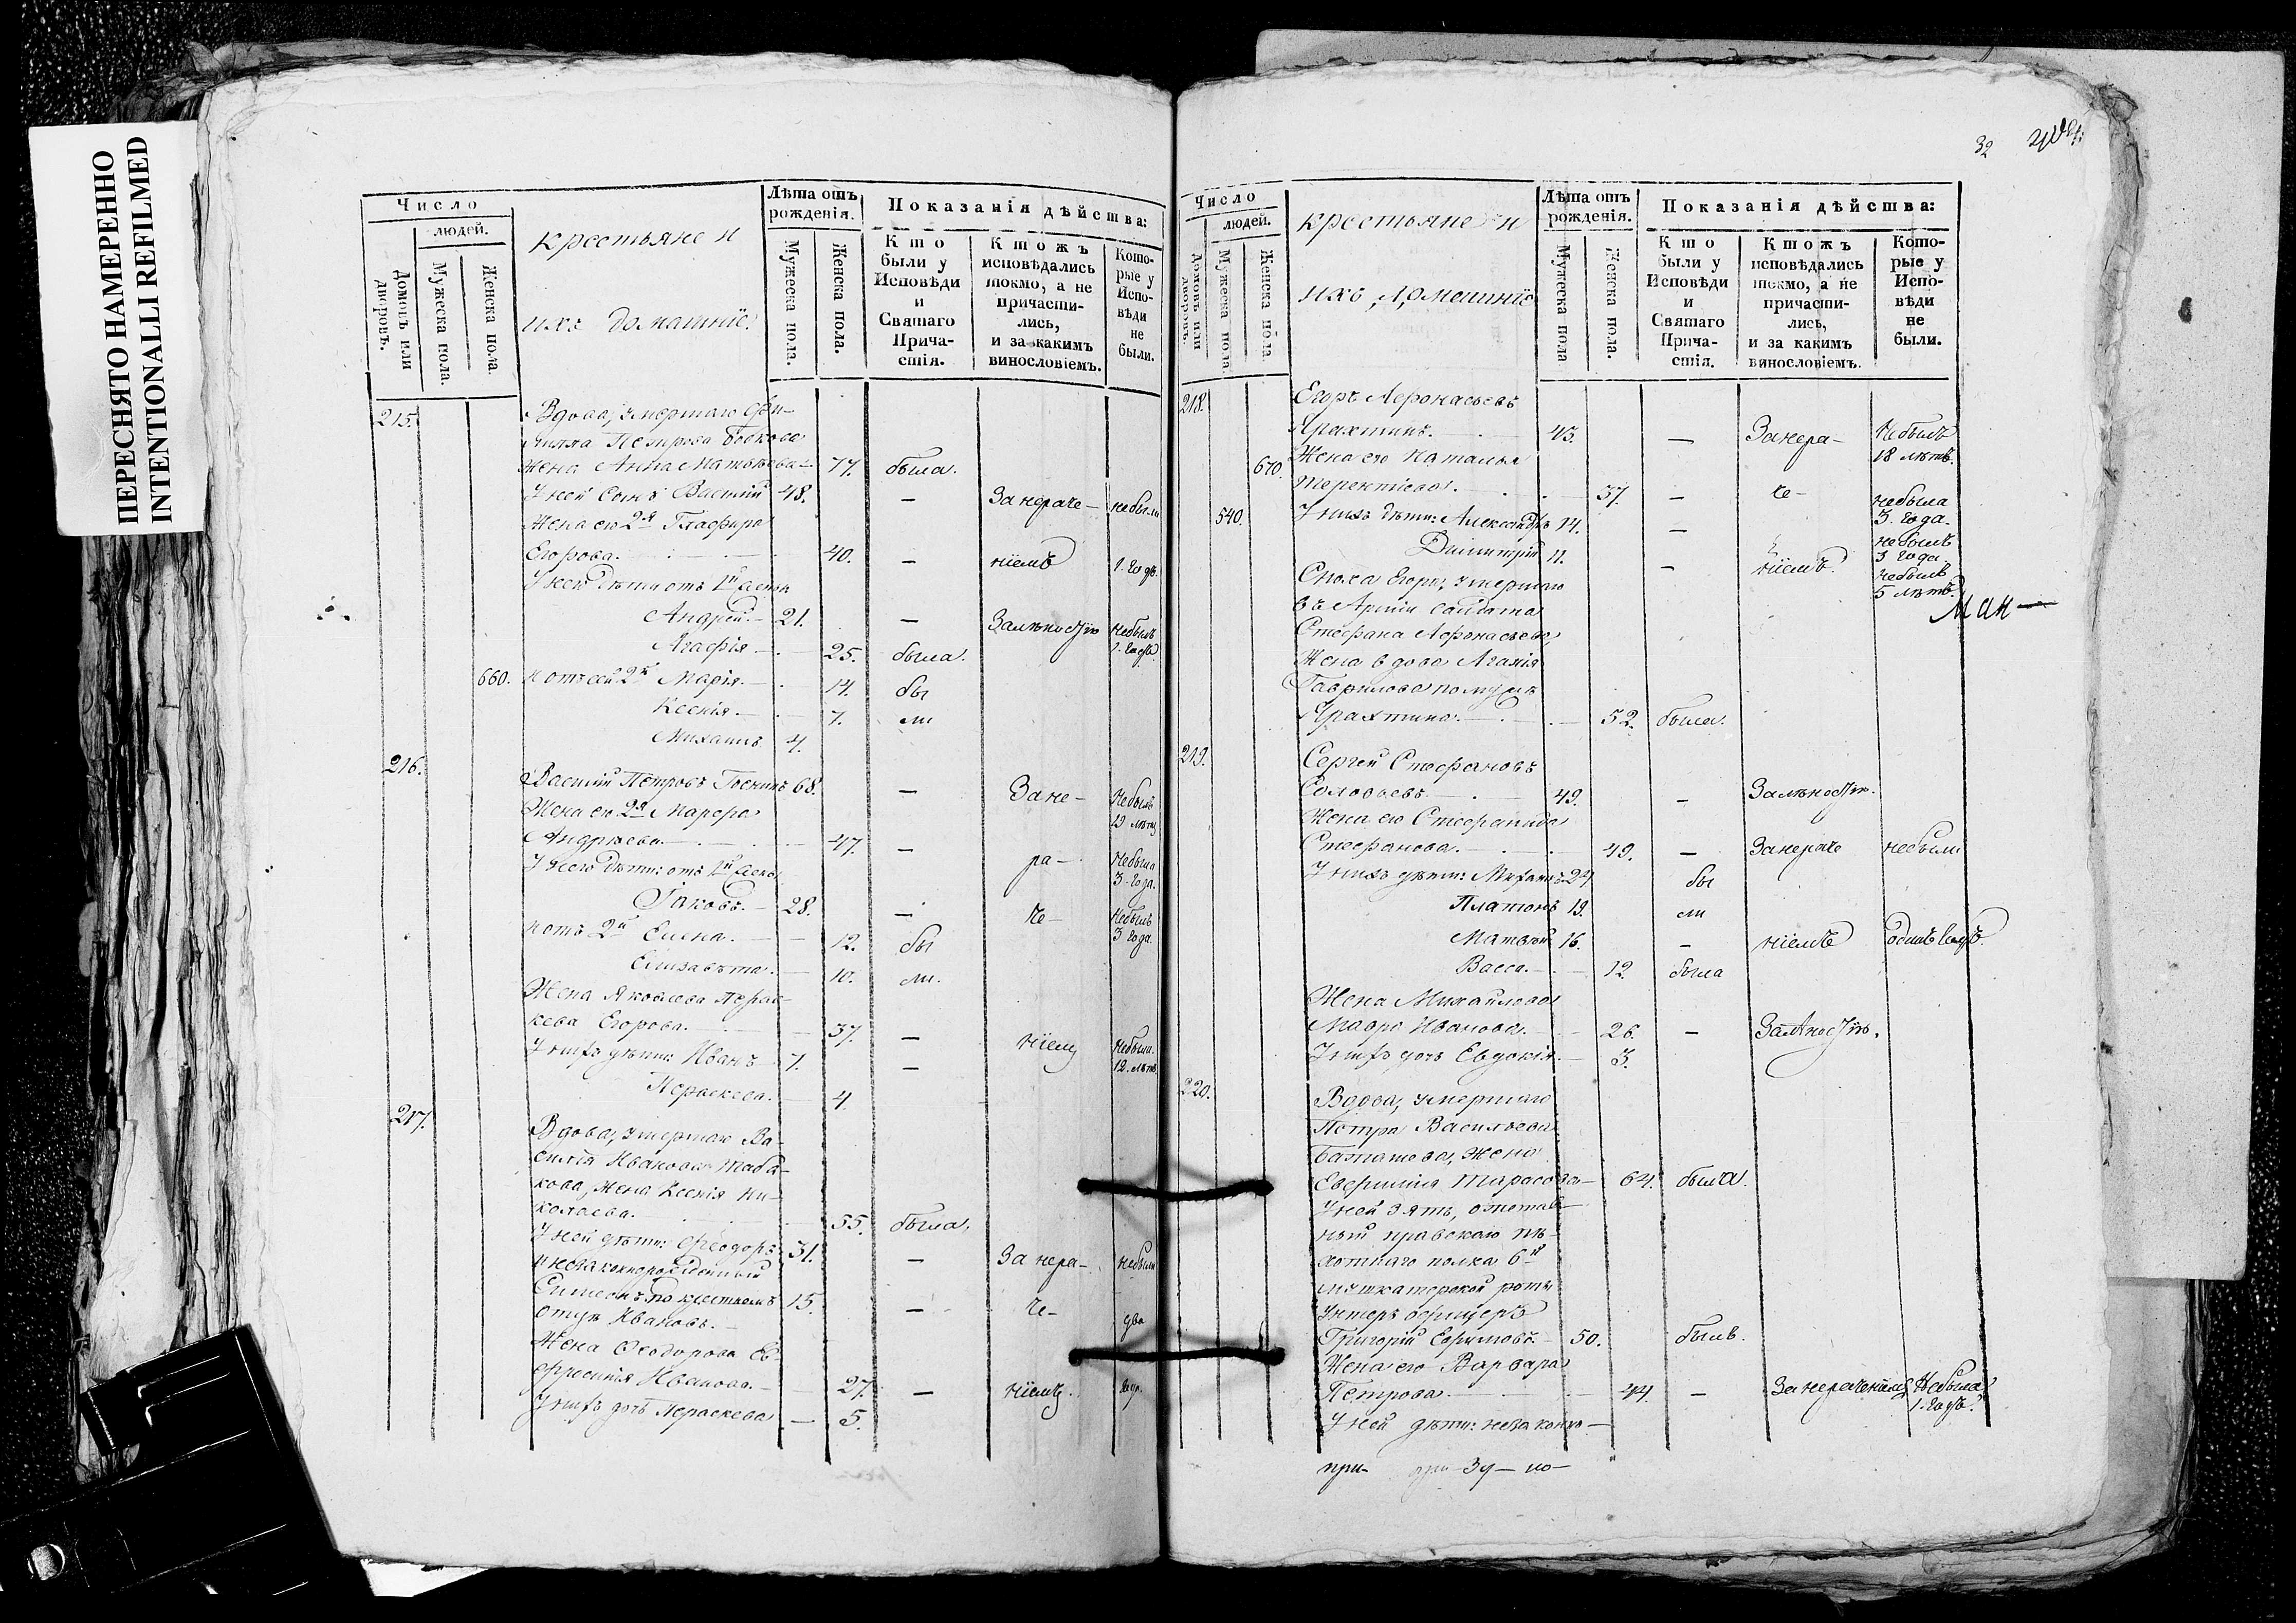 ПЕРЕСНЯТО НАМЕРЕННО
INTENTIONALLI REFILMED
Число
людей.
Домовъ или дворовъ.
Мужеска пола.
Женска пола.
крестьяне и
ихъ домашніе:
Лѣта отъ рожденія.
Мужеска пола.
Женска пола.
Показанія дѣйства:
Кто были у Исповѣди и Святаго Причастія.
Ктожъ исповѣдались токмо, а не причастились, и за какимъ винословіемъ.
Которые у Исповѣди не были.
215. Вдова, умершаго
Петрова
Жена Анна Матвѣева 77. была.
У ней сынъ Василій 48. — За нераче— небыли
Жена его 2я Глафира
Егорова. 40. — ніемъ 1. годъ.
У нею дѣти отъ 1й жены
Андрей. 21. — За лѣностію небылъ 1. годъ.
Агафія 25. была.
660. и отъ сей 2й Марія. 14. бы
Ксенія. 7. ли
Михаилъ 4.
216. Василій Петровъ 68. — За не— Небылъ 19 лѣтъ
Жена его 2я Марфа
Андрѣева. 47. — ра— Небыла 3. года.
У него дѣти: отъ 1й жены
Іаковъ. 28. — че— Небылъ 3 года.
и отъ 2й Елена. 12. бы
Елисавета. 10. ли.
Жена Яковлева Парас—
кева Егорова. 37. — ніемъ Небыла. 12. лѣтъ.
У нихъ дѣти: Иванъ 7. —
Параскева. 4.
217. Вдова, умершаго Ва—
силія Иванова Таба—
кова, жена Ксенія Ни—
колаева. 55. была.
У ней дѣти: Ѳеодоръ 31. — За нера— небыли
и незаконнорожденный
Симеонъ по крестномъ 15. — че— два
отцѣ Ивановъ.
Жена Ѳеодорова Ев—
фросинія Иванова. 27. — ніемъ. год.
У нихъ дочь Параскева — 5.
32
Число
людей.
Домовъ или дворовъ.
Мужеска пола
Женска пола
крестьяне и
ихъ домашніе
Лѣта отъ рожденія.
Мужеска пола
Женска пола.
Показанія дѣйства:
Кто были у Исповѣди и Святаго Причастія.
Ктожъ исповѣдались токмо, а не причастились, и за какимъ винословіемъ.
Которые у Исповѣди не были.
218. Егоръ Афонасьевъ
Ярахтинъ. 45. — За нера— Небылъ 18 лѣтъ.
670. Жена его Наталья
Терентіева. 37. — че— небыла 3. года.
540. У нихъ дѣти: Александръ 14. — небылъ 3 года.
Димитрій 11. — ніемъ. небылъ 5 лѣтъ.
Сноха Егора, умершаго
въ Арміи солдата
Стефана Афонасьева,
Жена вдова Агапія
Гаврилова по мужѣ
Ярахтина. 52. была.
219. Сергей Стефановъ
Соловьевъ. 49. — За лѣностію.
Жена его Стефанида
Стефанова. 49. — За нераче небыли
У нихъ дѣти: Михаилъ 24 бы
Платонъ 19. ли
Матвѣй 16. — ніемъ одинъ годъ.
Васса. 12. была
Жена Михайлова
Мавра Иванова. 26. — За лѣностію.
У нихъ дочь Евдокія. 3.
220. Вдова, умершаго
Петра Васильева
Баташева, жена
Евфимія Тарасова— 64. была.
У ней зять, отстав—
ный нравскаго пѣ—
хотнаго полка 6й
мушкатерской роты
унтеръ офицеръ
Григорій Ефимовъ. 50. былъ.
Жена его Варвара
Петрова. 44. — За нераченіемъ Небыла 1. годъ.
У ней дѣти: незаконно—
при